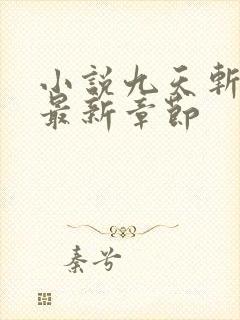 小說九天斬
最新章節
秦兮